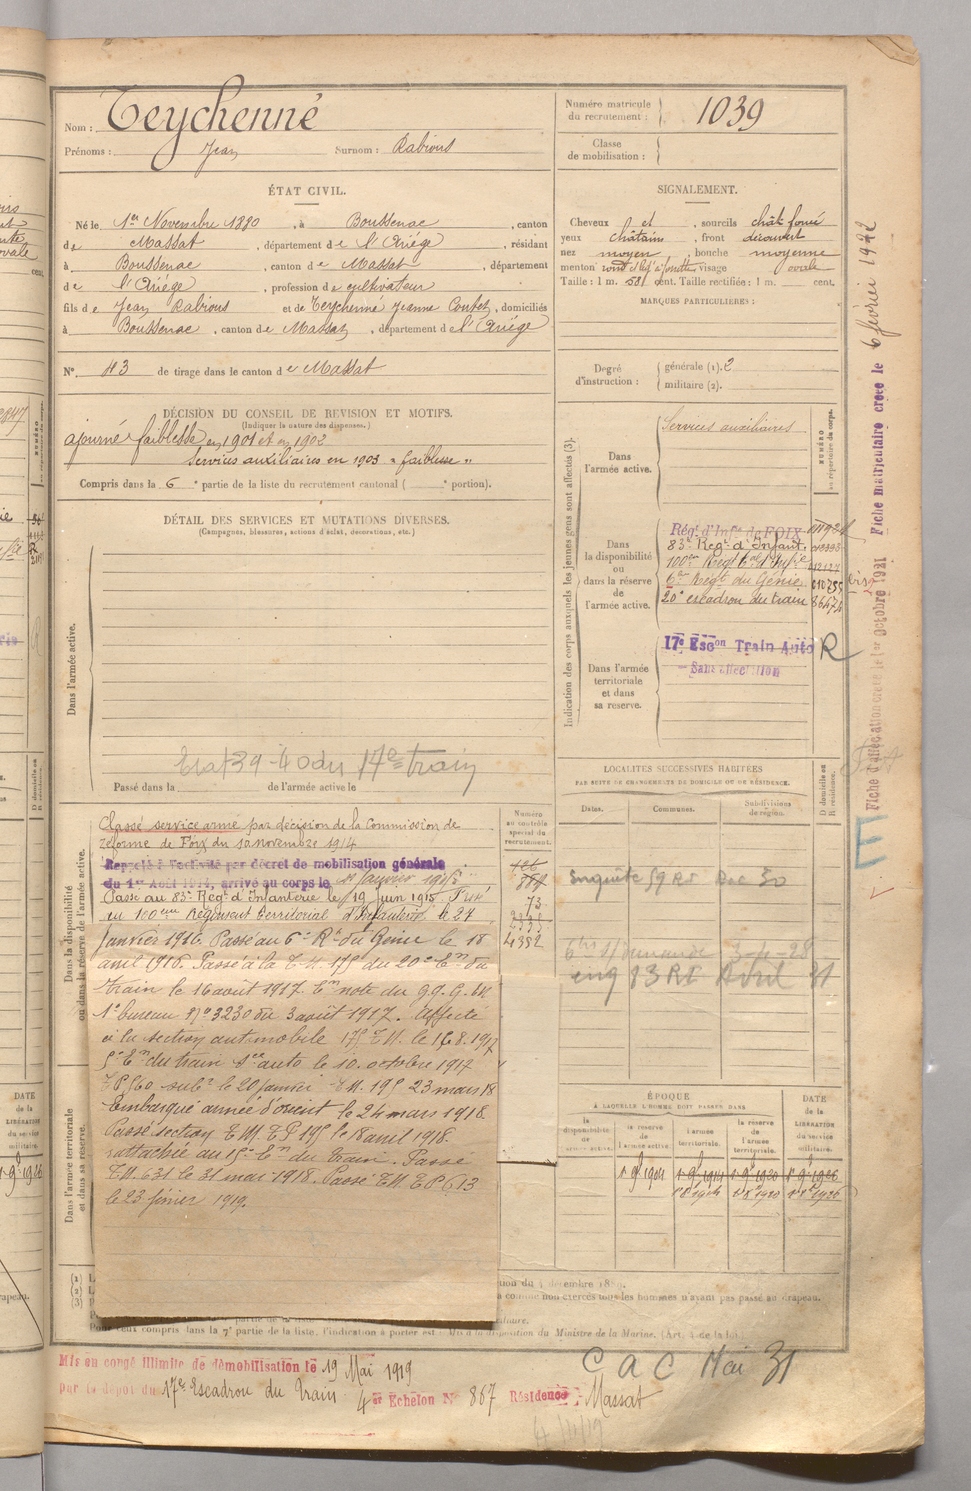 Nom : Teychenné
Prénoms : Jean Surnom : Rabious
Numéro matricule du recrutement : 1039
Classe de mobilisation :
ÉTAT CIVIL.
Né le 1er Novembre 1880, à Boussenac, canton
de Massat, département de l'Ariège, résidant
à Boussenac, canton de Massat, département
de l'Ariège, profession de cultivateur
fils de Jean Rabious et de Teychenné Jeanne Coutet, domiciliés
à Boussenac, canton de Massat, département de l'Ariège
N° 43 de tirage dans le canton de Massat
SIGNALEMENT.
Cheveux et, sourcils chât foncé
yeux châtain, front découvert
nez moyen, bouche moyenne
menton rond, visage ovale
Taille : 1 m. 581 cent. Taille rectifiée : 1 m. cent.
MARQUES PARTICULIÈRES :
Degré d'instruction : générale (1). 2
militaire (2).
DÉCISION DU CONSEIL DE REVISION ET MOTIFS.
(Indiquer la nature des dispenses.)
ajourné faiblesse en 1901 et en 1902
Services auxiliaires en 1903 "faiblesse"
Compris dans la 6e partie de la liste du recrutement cantonal ( e portion).
DÉTAIL DES SERVICES ET MUTATIONS DIVERSES.
(Campagnes, blessures, actions d'éclat, décorations, etc.)
Dans l'armée active.
39-40 du 17e train
Passé dans la de l'armée active le
Indication des corps auxquels les jeunes gens sont affectés (3).
NUMÉRO au répertoire du corps.
Dans l'armée active.
Services auxiliaires
Dans la disponibilité ou dans la réserve de l'armée active.
Régt d'Infie de FOIX
83e Regt d'Infant.
100em Regt tal d'Infie
6e Regt du Génie
20e escadron du train
Dans l'armée territoriale et dans sa réserve.
17e Escon Train Auto R
Sans affectation
Fiche d'affectation créée le 1er Octobre 1921 Fiche matriculaire créée le 6 février 1922
LOCALITÉS SUCCESSIVES HABITÉES
PAR SUITE DE CHANGEMENTS DE DOMICILE OU DE RÉSIDENCE.
Dates. Communes. Subdivisions de région. D domicile ou R résidence.
enquête 59 RI Dec 30
3-4-28
enq 83 RI Avril 31
Dans la disponibilité ou dans la réserve de l'armée active.
Numéro au contrôle spécial du recrutement.
Classé service armé par décision de la Commission de
réforme de Foix du 10 novembre 1914
Rappelé à l'activité par décret de mobilisation générale
du 1er Août 1914, arrivé au corps le
Passé au 83e Regt d'Infanterie le 19 Juin 1915. Passé
au 100em Régiment territorial d'Infanterie le 24
Janvier 1916. Passé au 6e Rt du Génie le 18
avril 1916. Passé à la T.M. 175 du 20e Em du
train le 16 août 1917. En note du G.Q.G. TM
1er bureau No 3230 du 3 août 1917. Affecté
à la section automobile 175 T.M. le 16.8.1917
5e Em du train Sce auto le 10 octobre 1917
T.P. 560 subce le 20 janvier T.M. 195 23 mars 18
Embarqué armée d'orient le 24 mars 1918.
Passé section T.M. T.P. 195 le 18 avril 1918.
rattachée au 15e Em du train. Passé
T.M. 631 le 31 mars 1918. Passé T.M. T.P. 613
le 23 février 1919.
73
2335
4352
Dans l'armée territoriale et dans sa réserve.
ÉPOQUE
À LAQUELLE L'HOMME DOIT PASSER DANS
la disponibilité de l'armée active. la réserve de l'armée active. l'armée territoriale. la réserve de l'armée territoriale.
DATE de la LIBÉRATION du service militaire.
1.9.1904 1.9.1914 1.9.1920 1.9.1926
comme non exercés tous les hommes n'ayant pas passé au drapeau.
Pour ceux compris dans la 7e partie de la liste, l'indication à porter est : Mis à la disposition du Ministre de la Marine. (Art. 4 de la loi.)
Mis en congé illimité de démobilisation le 19 Mai 1919
par le dépôt du 17e Escadron du Train 4er Échelon N° 867 Résidence : Massat
C a C Mai 31